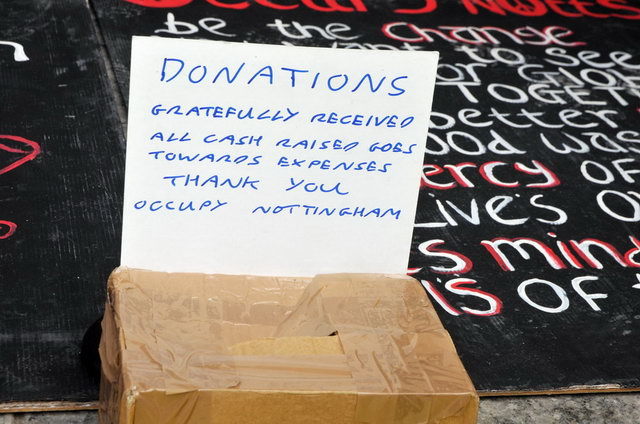 DONATIONS
GRATEFULLY RECEIVED
ALL CASH RAISED GOES
TOWARDS EXPENSES
THANK YOU
OCCUPY NOTTINGHAM
be the change
want to see
TOGETH
better
was
OF
LIVES
mind
is OF